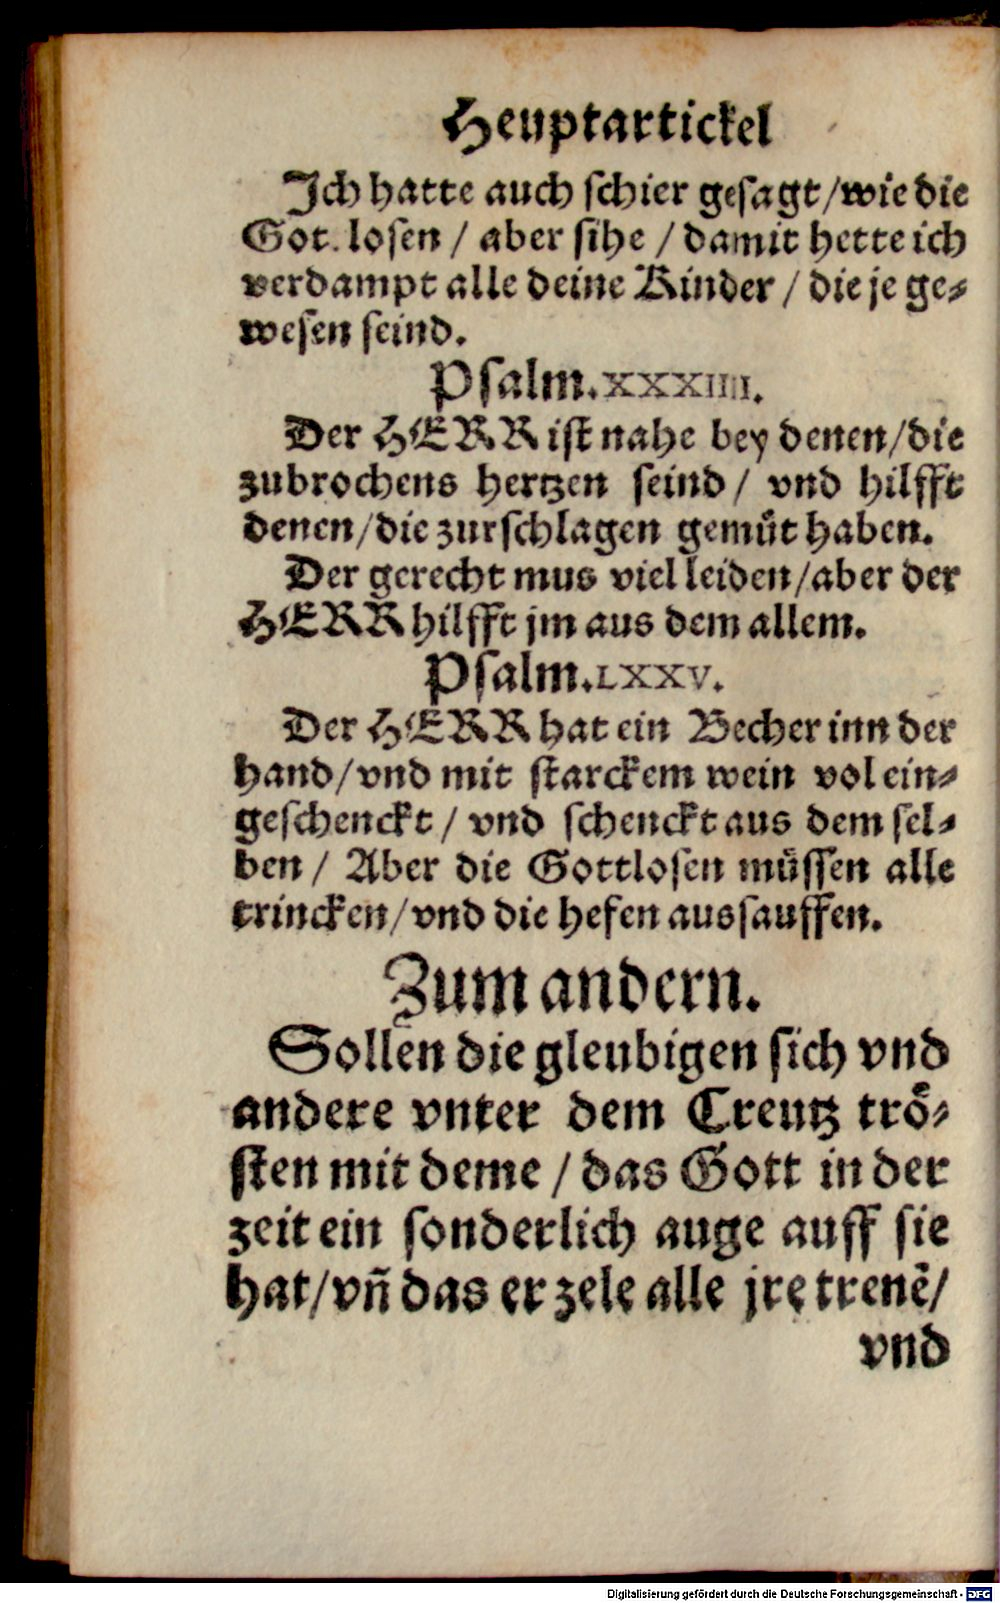 Heuptartickel
Ich hatte auch schier gesagt/wie die
Got. losen / aber sihe / damit hette ich
verdampt alle deine Kinder / die je ge-
wesen seind.
Psalm.XXXIIII.
Der HERR ist nahe bey denen/die
zubrochens hertzen seind / vnd hilfft
denen/die zurschlagen gemüt haben.
Der gerecht mus viel leiden/aber der
HERR hilfft jm aus dem allem.
Psalm.LXXV.
Der HERR hat ein Becher inn der
hand/vnd mit starckem wein vol ein-
geschenckt / vnd schenckt aus dem sel-
ben / Aber die Gottlosen müssen alle
trincken/vnd die hefen aussauffen.
Zum andern.
Sollen die gleubigen sich vnd
andere vnter dem Creutz trö-
sten mit deme / das Gott in der
zeit ein sonderlich auge auff sie
hat/vn̄ das er zele alle jre trenē/
vnd
Digitalisierung gefördert durch die Deutsche Forschungsgemeinschaft - DFG